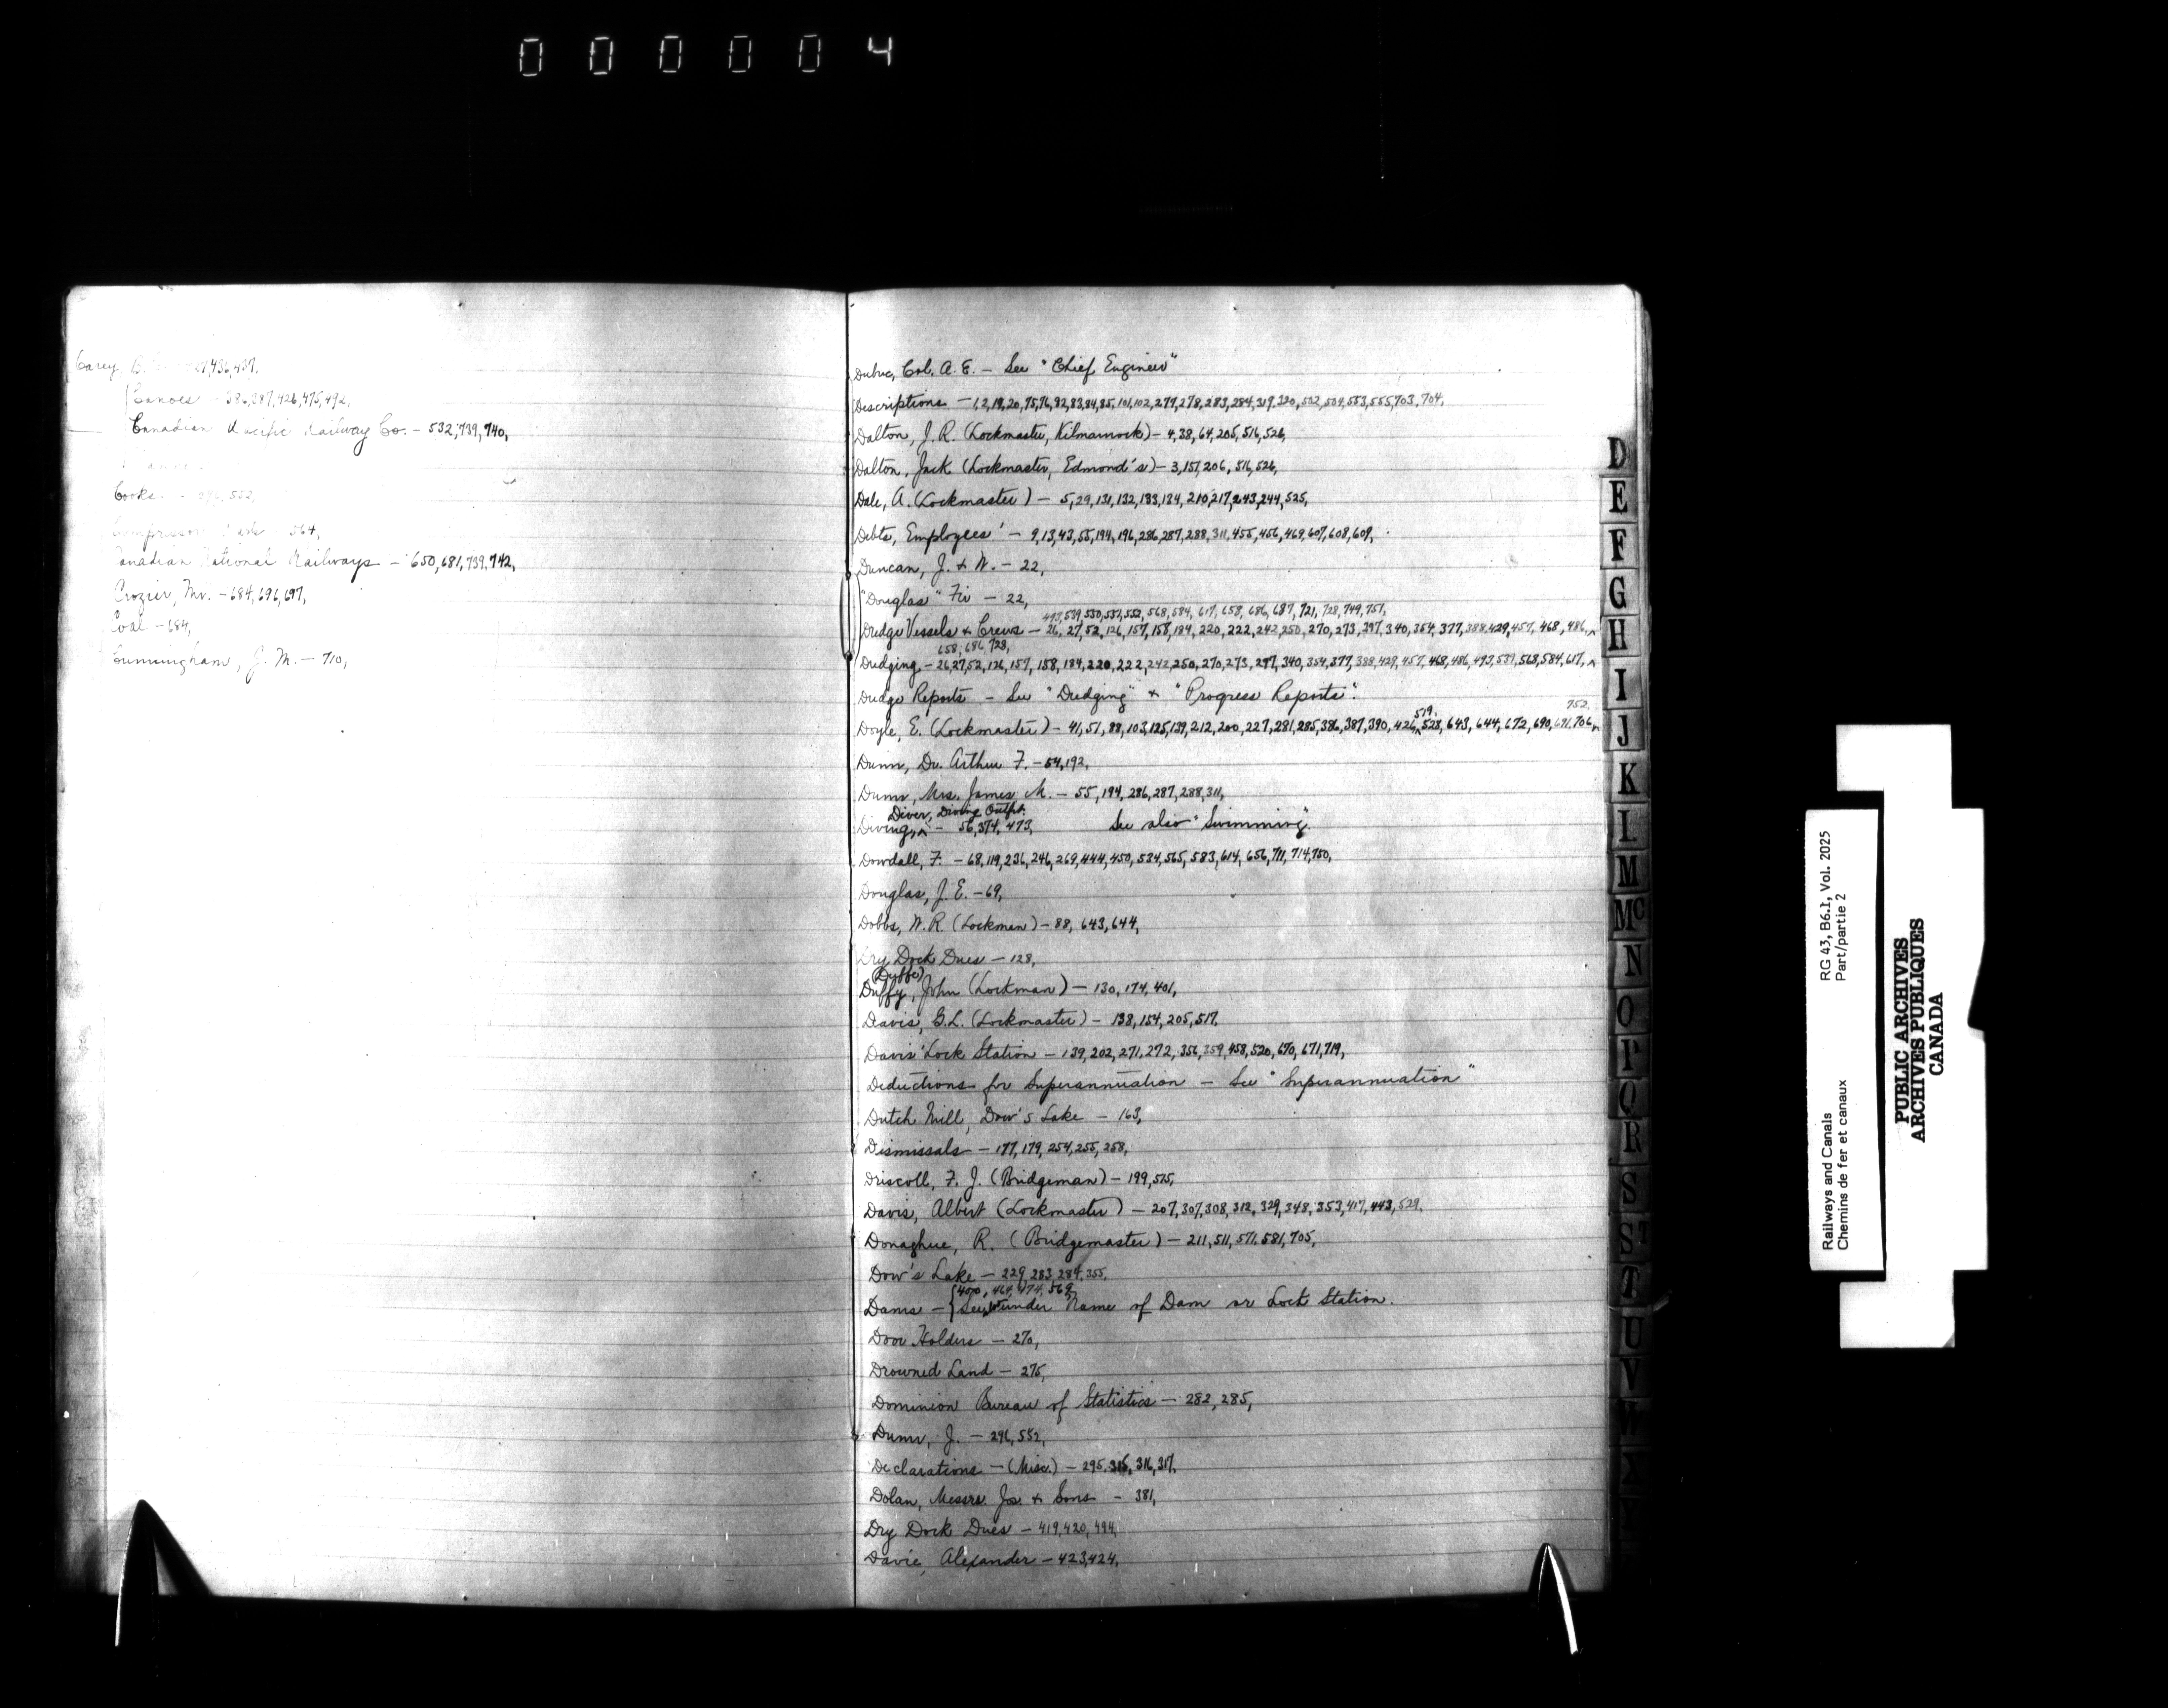 000004
Carey, B. 436,437,
Canoes - 386,387,426,475,492,
Canadian Pacific Railway Co. - 532,739,740,
Cooks - 552,
564,
Canadian National Railways - 650,681,739,742,
Crozier, Mr. - 684,696,697,
Coal - 684,
Cunningham, J. M. - 710,
Dubuc, Col. A. E. - See "Chief Engineer"
Descriptions - 1,2,19,20,75,76,82,83,84,85,101,102,277,278,283,284,319,320,502,504,553,555,703,704,
Dalton, J. R (Lockmaster, Kilmarnock) - 4,38,64,205,516,526,
Dalton, Jack (Lockmaster, Edmond's) - 3,157,206,516,526,
Dale, A. (Lockmaster) - 5,29,131,132,183,184,210,217,243,244,525,
Debts, Employees' - 9,13,43,55,194,196,286,287,288,311,455,456,469,607,608,609,
Duncan, J. & W. - 22,
"Douglas" Fir - 22,
493,539,550,551,552,568,584,617,658,686,687,721,728,749,751,
Dredge Vessels & Crews - 26,27,52,126,157,158,184,220,222,242,250,270,273,297,340,354,377,388,429,457,468,486,
658,686,728,
Dredging - 26,27,52,126,157,158,184,220,222,242,250,270,273,297,340,354,377,388,429,457,468,486,493,539,568,584,617,
Dredge Reports - See "Dredging" & "Progress Reports".
519. 752.
Doyle, E. (Lockmaster) - 41,51,88,103,125,139,212,200,227,281,285,386,387,390,426,528,643,644,672,690,691,706,
Dunn, Dr. Arthur F. - 54,192,
Dunn, Mrs. James M. - 55,194,286,287,288,311,
Diver, Diving Outfit.
Diving, - 56,374,473, See also "Swimming".
Dowdall, F. - 68,119,236,246,269,444,450,534,565,583,614,656,711,714,750,
Douglas, J. E. - 69,
Dobbs, W. R (Lockman) - 88,643,644,
Dry Dock Dues - 128,
(Duffe)
Duffy, John (Lockman) - 130,174,401,
Davis, G. L. (Lockmaster) - 138,154,205,517,
Davis' Lock Station - 139,202,271,272,356,359,458,520,670,671,719,
Deductions for Superannuation - See "Superannuation"
Dutch Mill, Dow's Lake - 163,
Dismissals - 177,179,254,255,258,
Driscoll, F. J. (Bridgeman) - 199,515,
Davis, Albert (Lockmaster) - 207,307,308,312,329,348,353,417,443,529,
Donaghue, R. (Bridgemaster) - 211,511,571,581,705,
Dow's Lake - 229,283,284,355,
400,464,474,569,
Dams - See under Name of Dam or Lock Station.
Door Holders - 270,
Drowned Land - 275,
Dominion Bureau of Statistics - 282,285,
Dunn, J. - 296,552,
Declarations - (Misc.) - 295,315,316,317,
Dolan, Messrs. Jos. & Sons - 381,
Dry Dock Dues - 419,420,494,
Davie, Alexander - 423,424,
D
E
F
G
H
I
J
K
L
M
Mc
N
O
P
Q
R
S
ST
T
U
V
W
Railways and Canals RG 43, B6.1, Vol. 2025
Chemins de fer et canaux Part/partie 2
PUBLIC ARCHIVES
ARCHIVES PUBLIQUES
CANADA